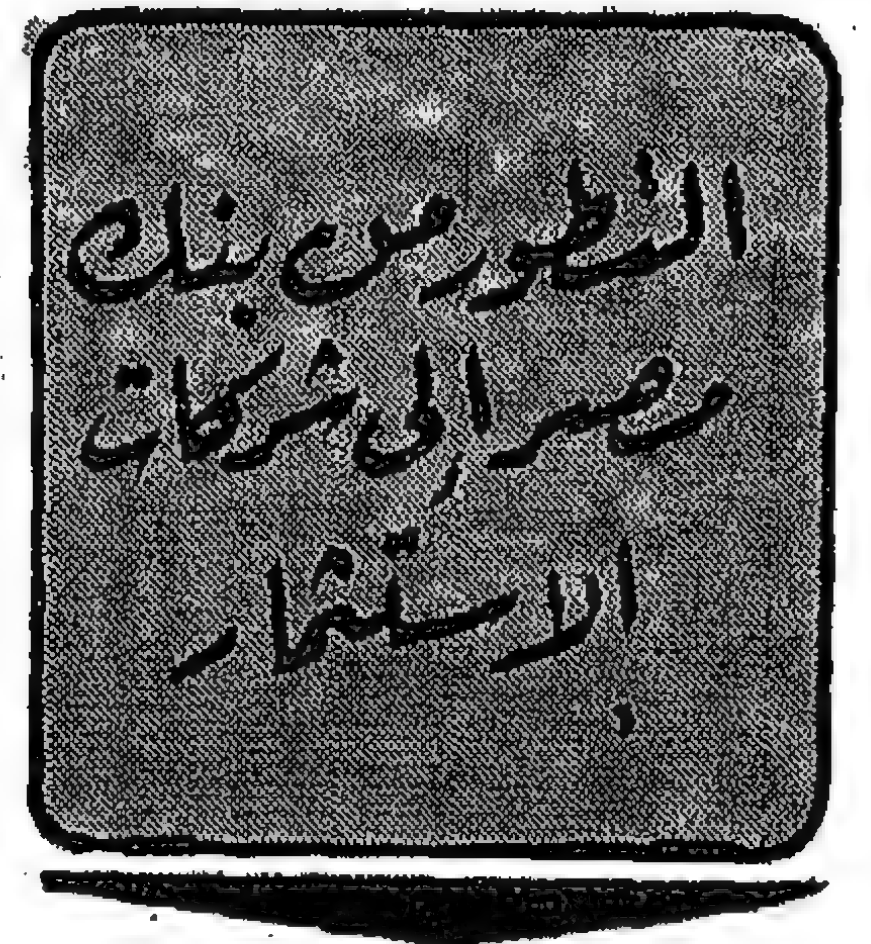 التطور من بنك
مصر الى شركات
الاستثمار